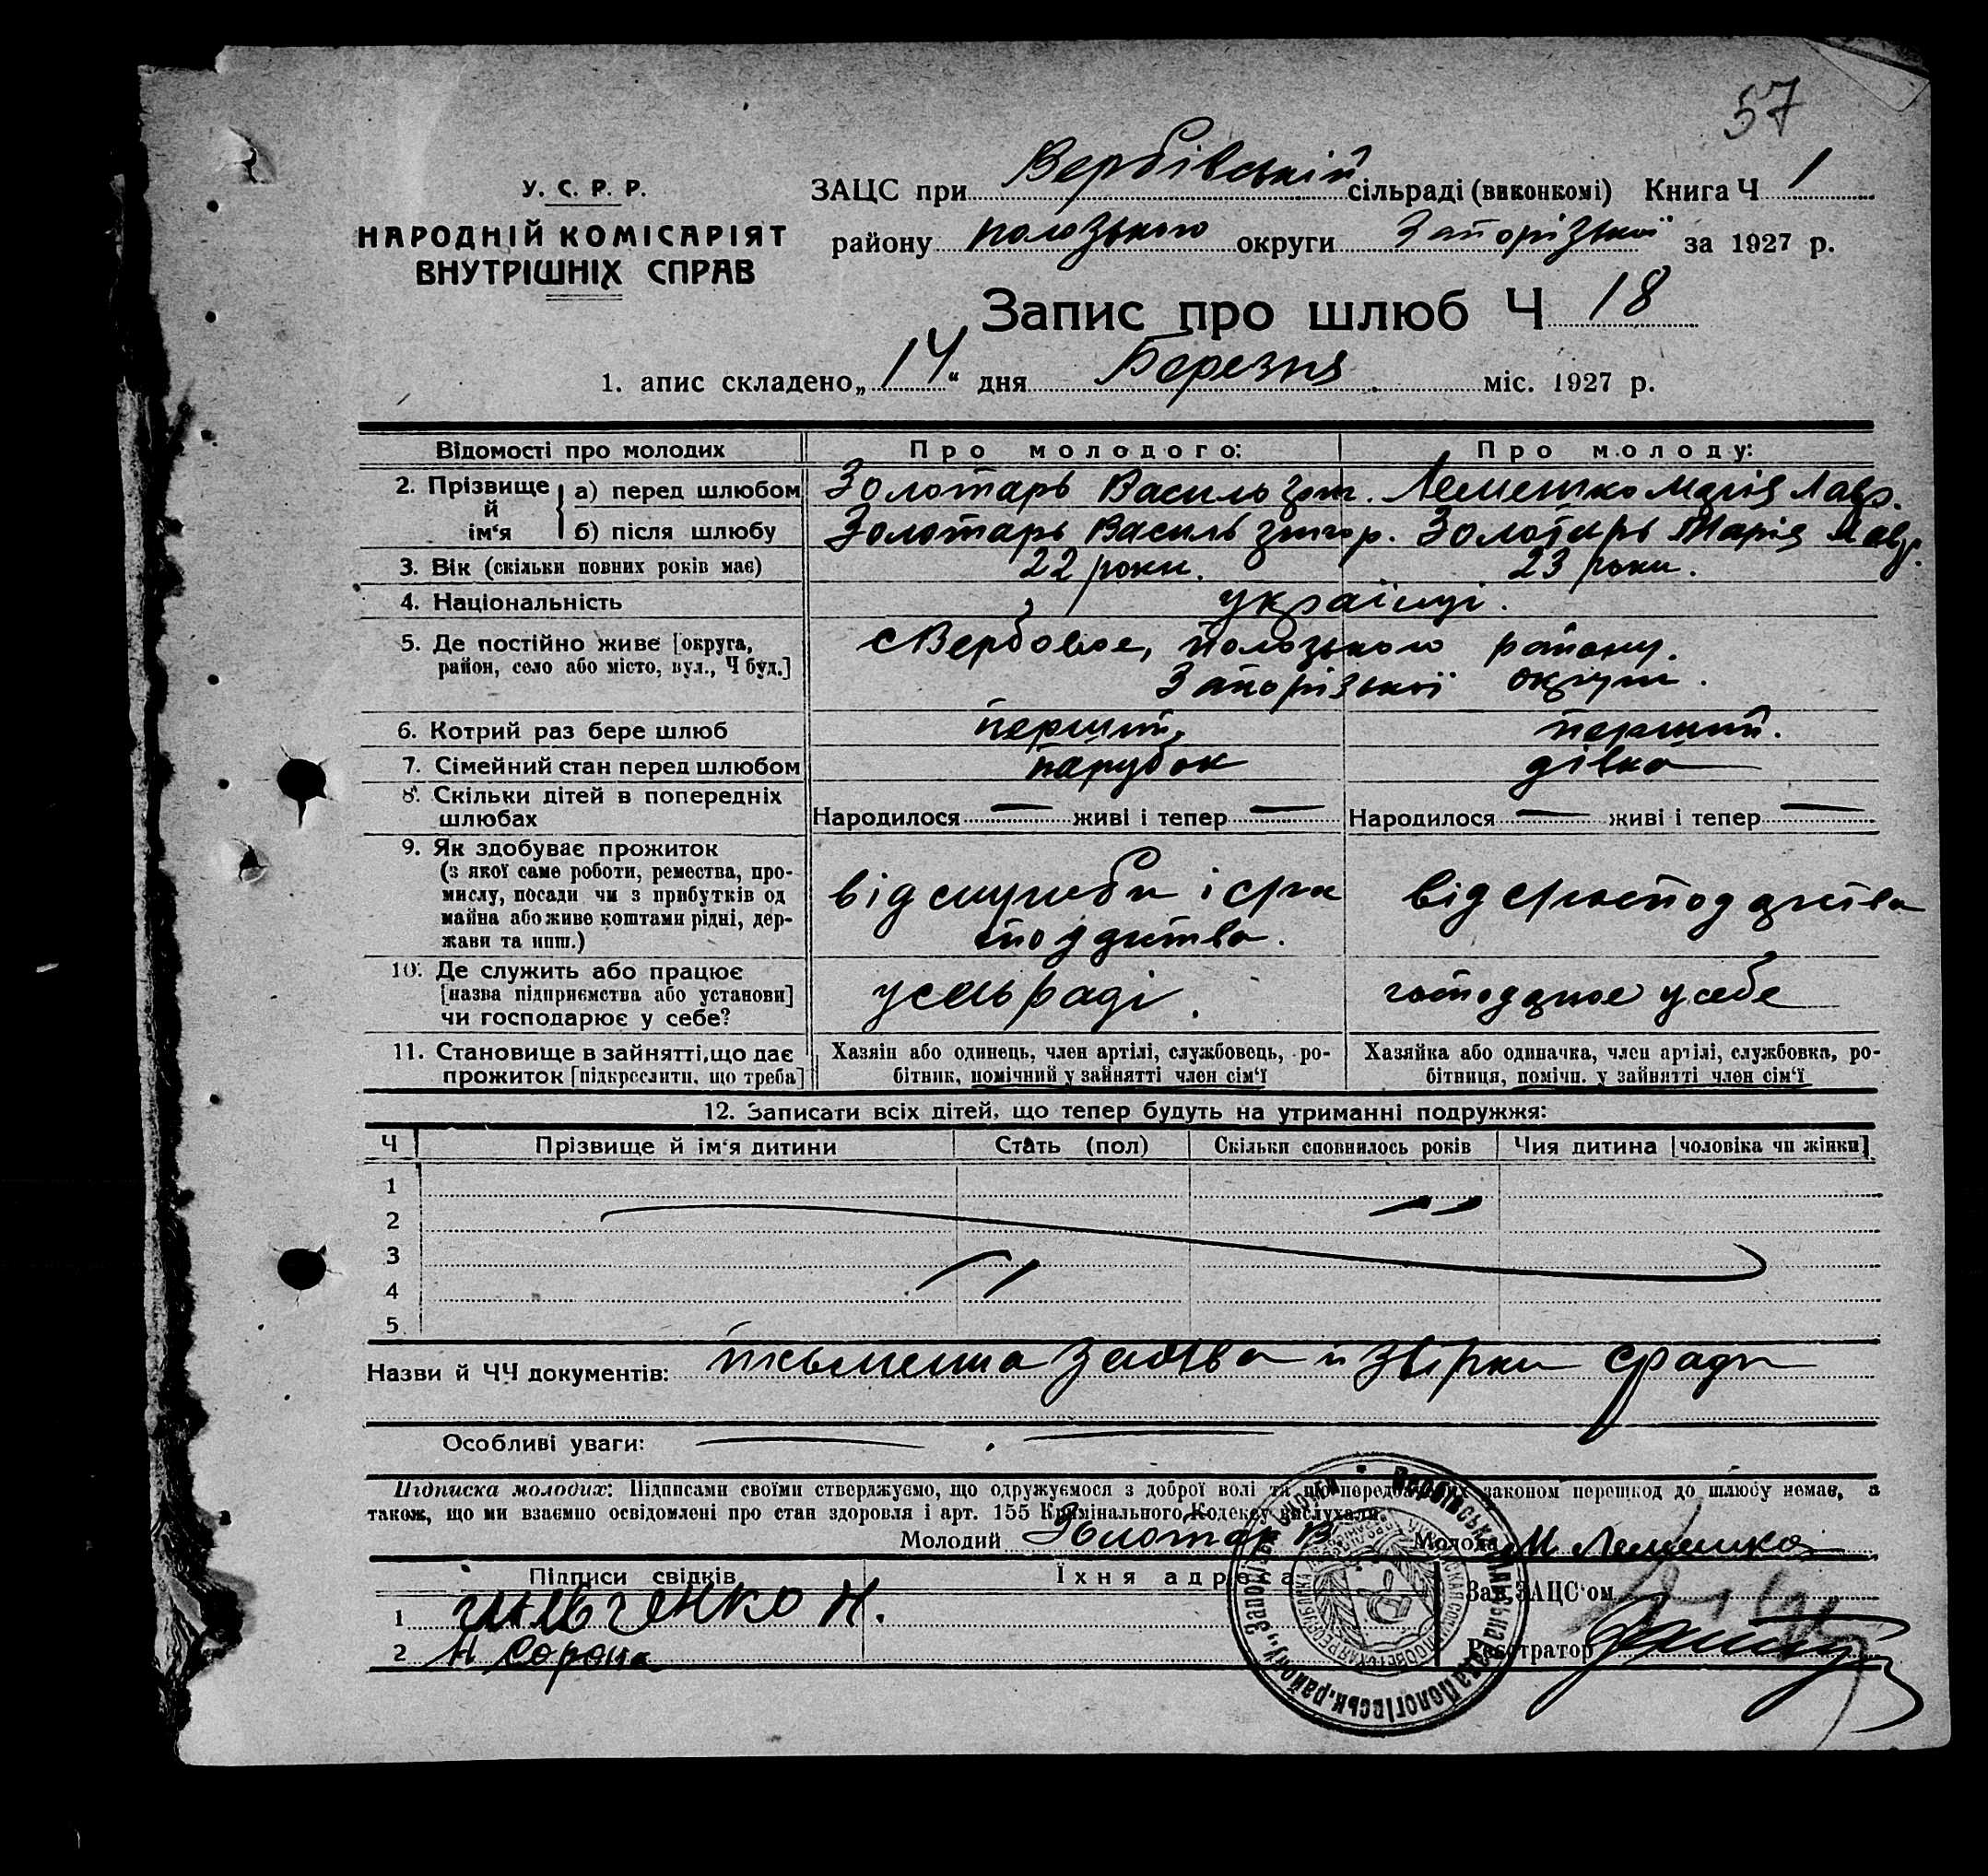 57
У. С. Р. Р.
НАРОДНІЙ КОМІСАРІЯТ
ВНУТРІШНІХ СПРАВ
ЗАЦС при Вербівській сільраді (виконкомі) Книга Ч 1
району полозького округи Запорізької за 1927 р.
Запис про шлюб Ч 18
1. апис складено „14“ дня Березня міс. 1927 р.
Відомості про молодих Про молодого: Про молоду:
2. Прізвище й ім‘я а) перед шлюбом Золотарь Василь Лемешко Марія Лавр.
б) після шлюбу Золотарь Василь Григор. Золотарь Марія Лавр.
3. Вік (скільки повних років має) 22 роки. 23 роки.
4. Національність українці.
5. Де постійно живе [округа, район, село або місто, вул., Ч буд.] с Вербовое, Полозького району.
Запорізької округи.
6. Котрий раз бере шлюб перший, перший.
7. Сімейний стан перед шлюбом парубок дівка
8. Скільки дітей в попередніх шлюбах Народилося — живі і тепер — Народилося — живі і тепер —
9. Як здобуває прожиток
(з якої саме роботи, ремества, про-
мислу, посади чи з прибутків од
майна або живе коштами рідні, дер-
жави та инш.)
від служби і
від
10. Де служить або працює
[назва підприємства або установи]
чи господарює у себе?
у сельраді.
господарює у себе
11. Становище в зайнятті, що дає прожиток [підкреслити, що треба]
Хазяїн або одинець, член артілі, службовець, ро-
бітник, помічний у зайнятті член сім‘ї
Хазяйка або одиначка, член артілі, службовка, ро-
бітниця, помічн. у зайнятті член сім‘ї
12. Записати всіх дітей, що тепер будуть на утриманні подружжя:
Ч Прізвище й ім‘я дитини Стать (пол) Скільки сповнилось років Чия дитина [чоловіка чи жінки]
1
2
3
4
5
Назви й ЧЧ документів: письменна заява й звірки с/ради
Особливі уваги: — . —
Підписка молодих: Підписами своїми стверджуємо, що одружуємося з доброї волі та що передбачених законом перешкод до шлюбу немає, а
також, що ми взаємно освідомлені про стан здоровля і арт. 155 Кримінального Кодексу вислухали.
Молодий Золотар В Молода М Лемешко
Підписи свідків Їхня адреса Зав. ЗАЦС‘ом
1 Ильченко Н.
2 Н Сорока Реєстратор